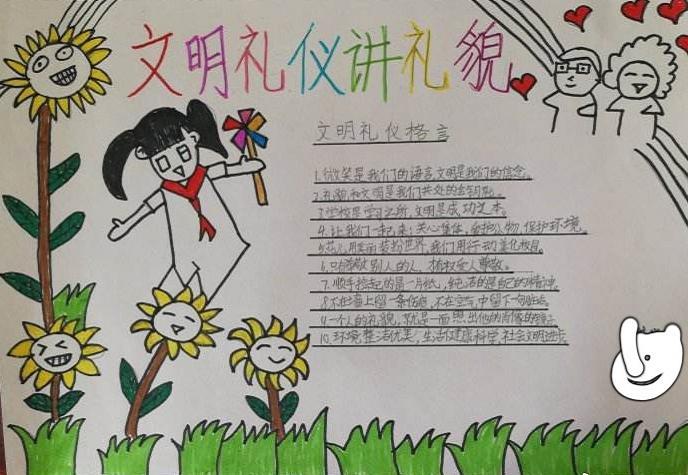 文明礼仪讲礼貌
文明礼仪格言
1.微笑是我们的语言,文明是我们的信念。
2.礼貌和文明是我们共处的金钥匙。
3.学校是学习之所,文明是成功之本。
4.让我们一起来:关心集体,爱护公物,保护环境。
5.花儿用美丽装扮世界,我们用行动美化校园。
6.只有尊敬别人的人,才有权受人尊敬。
7.顺手捡起的是一片纸,纯洁的是自己的精神。
8.不在墙上留一条伤痕,不在空气中留下一句脏话。
9.一个人的礼貌,就是一面照出他的肖像的镜子
10.环境整洁优美,生活健康科学,社会文明进步